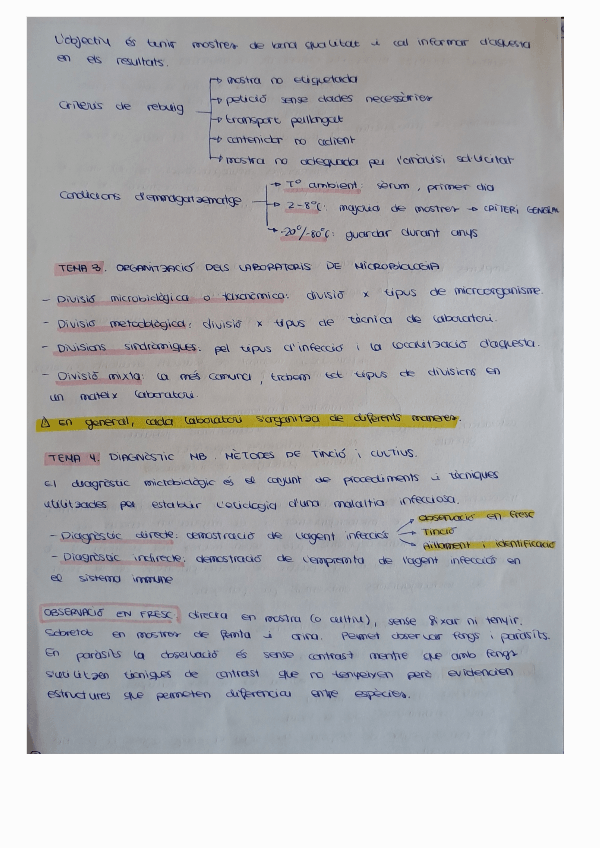 L'objectiu és tenir mostres de bona qualitat i cal informar d'aquesta
en els resultats.
Criteris de rebuig
→ mostra no etiquetada
→ petició sense dades necessàries
→ transport perllongat
→ contenidor no adient
→ mostra no adequada per l'anàlisi sol·licitat
Condicions d'emmagatzematge
→ Tº ambient: sèrum, primer dia
→ 2-8ºC: majoria de mostres → CRITERI GENERAL
→ -20º/-80ºC: guardar durant anys
TEMA 3. ORGANITZACIÓ DELS LABORATORIS DE MICROBIOLOGIA
- Divisió microbiològica o taxonòmica: divisió x tipus de microorganisme.
- Divisió metodològica: divisió x tipus de tècnica de laboratori.
- Divisions sindròmiques: pel tipus d'infecció i la localització d'aquesta.
- Divisió mixta: la més comuna, trobem tot tipus de divisions en
un mateix laboratori.
⚠ En general, cada laboratori s'organitza de diferents maneres.
TEMA 4. DIAGNÒSTIC MB. MÈTODES DE TINCIÓ i CULTIUS.
El diagnòstic microbiològic és el conjunt de procediments i tècniques
utilitzades per establir l'etiologia d'una malaltia infecciosa.
- Diagnòstic directe: demostració de l'agent infecciós
→ Observació en fresc
→ Tinció
→ Aïllament i identificació
- Diagnòstic indirecte: demostració de l'empremta de l'agent infecciós en
el sistema immune
OBSERVACIÓ EN FRESC: directa en mostra (o cultiu), sense fixar ni tenyir.
Sobretot en mostres de femta i orina. Permet observar fongs i paràsits.
En paràsits la observació és sense contrast mentre que amb fongs
s'utilitzen tècniques de contrast que no tenyeixen però evidencien
estructures que permeten diferenciar entre espècies.